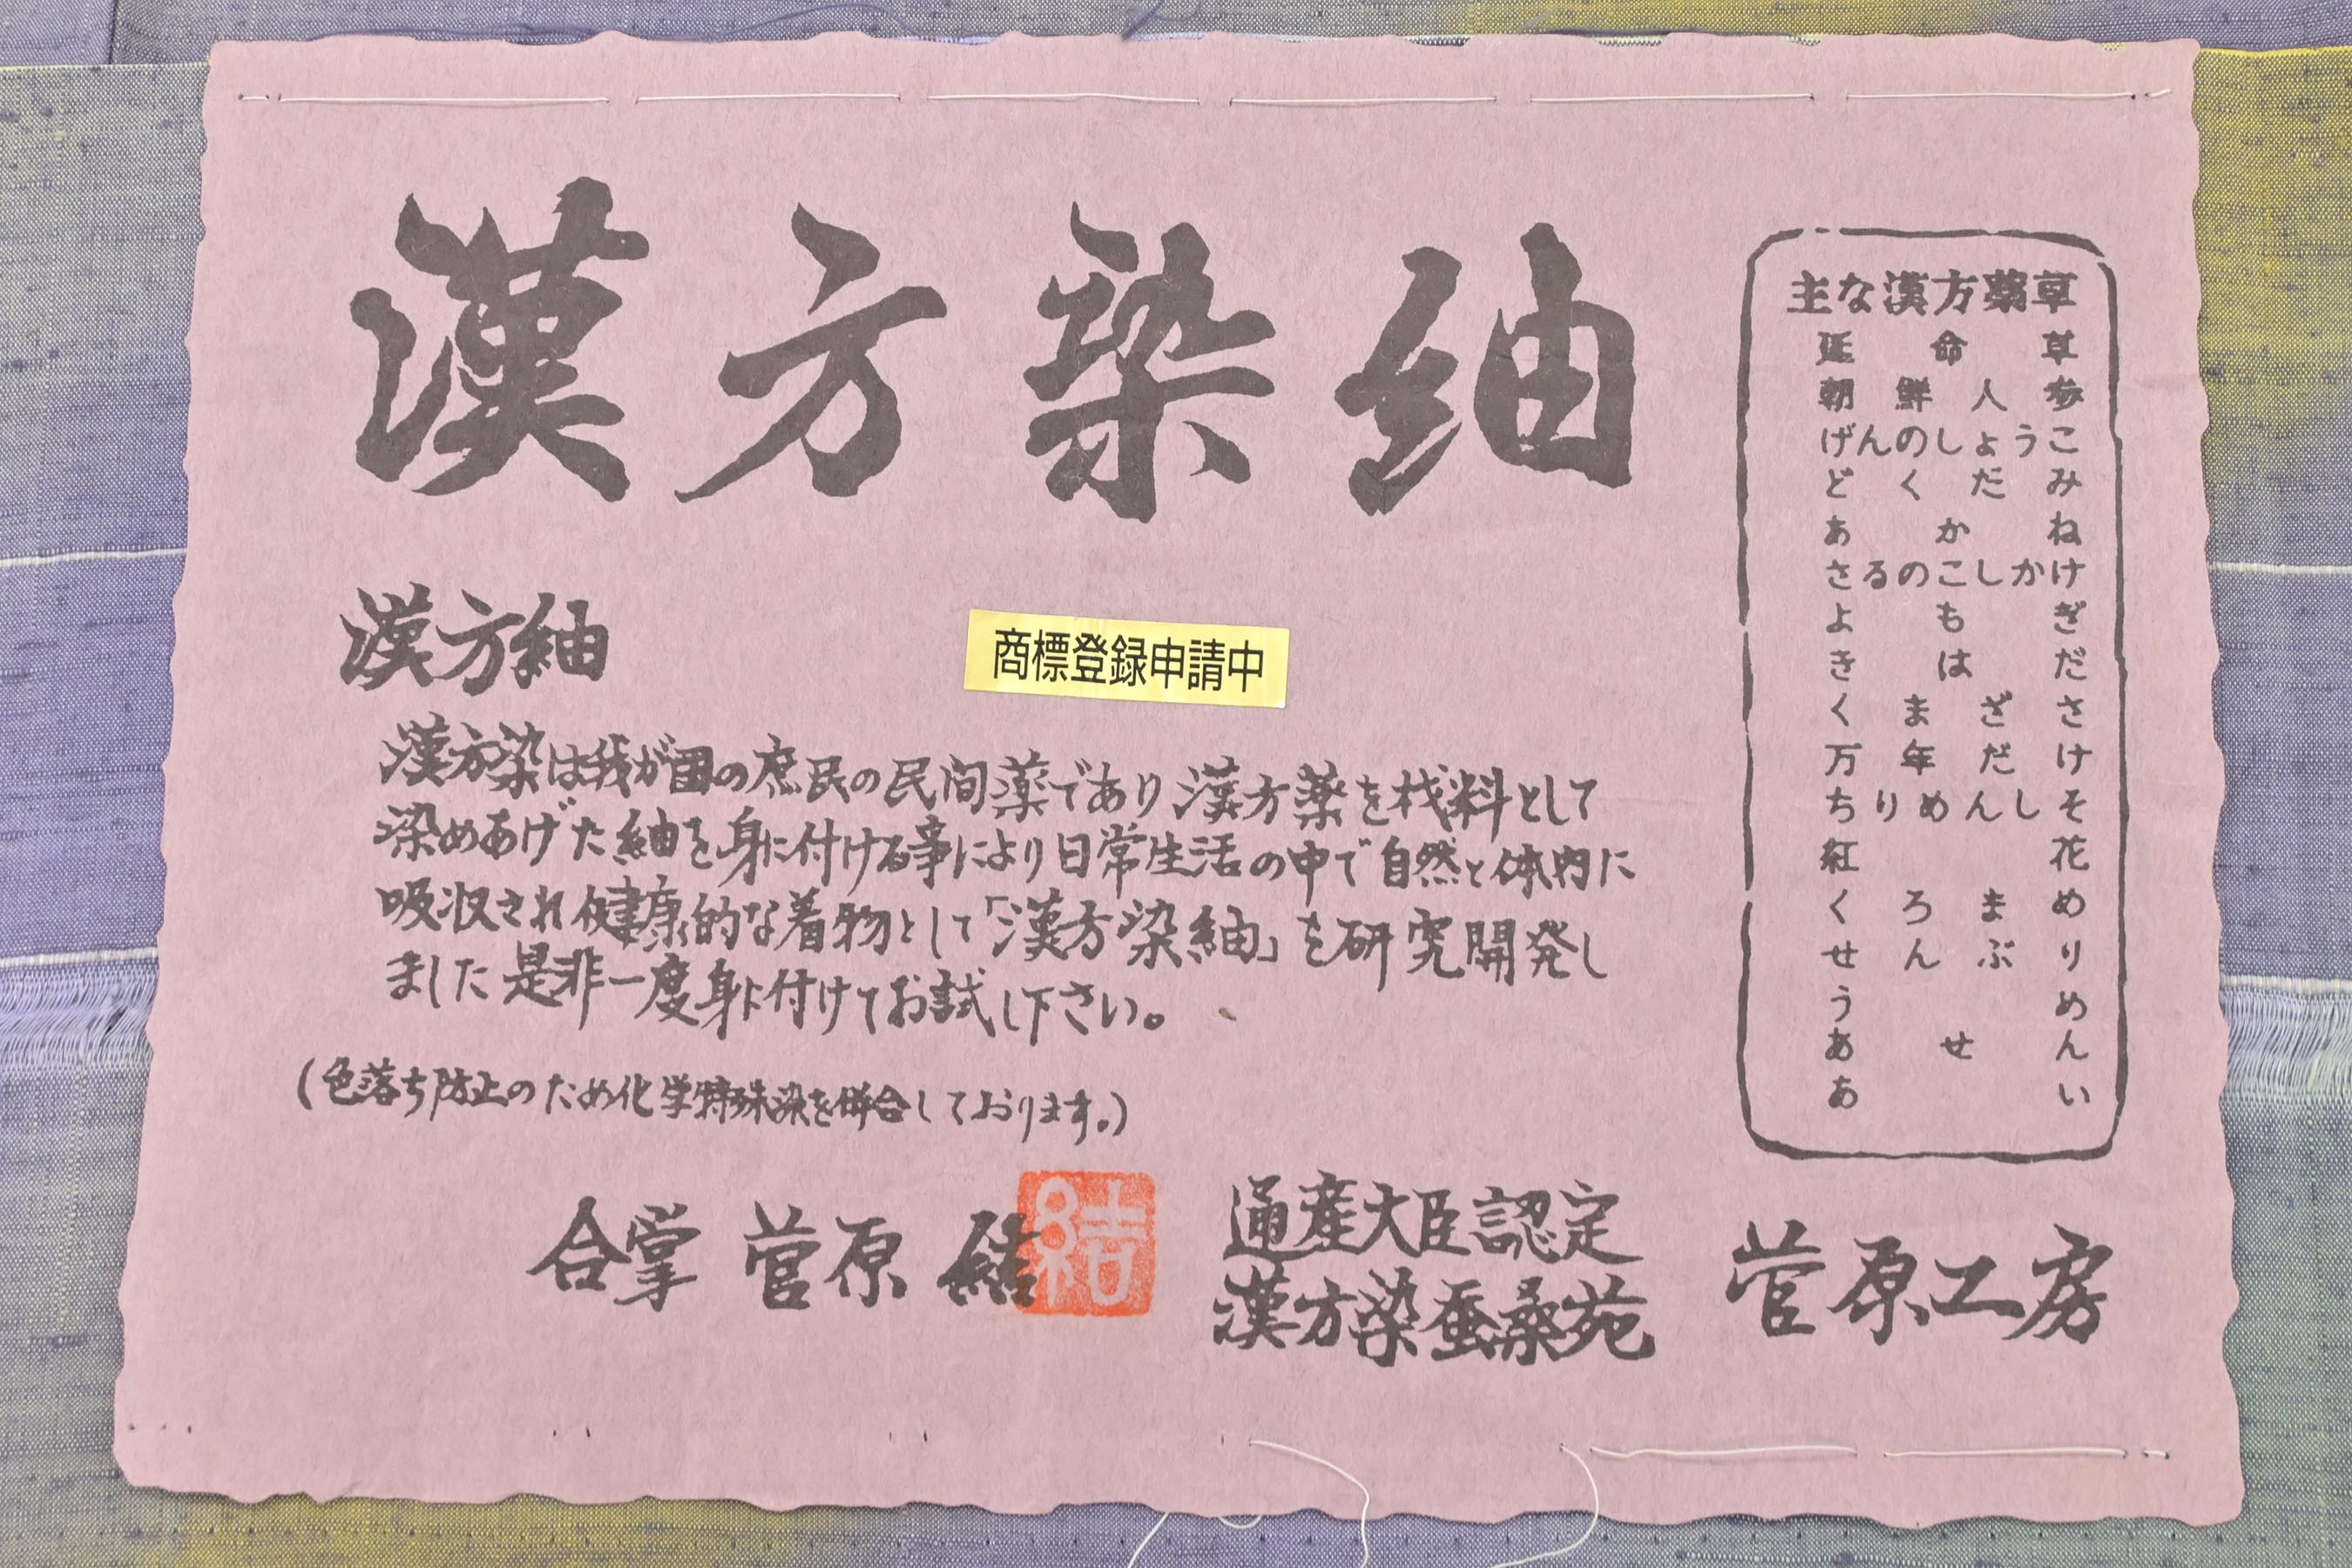 漢方染紬
漢方紬
商標登録申請中
漢方染は我が国の庶民の民間薬であり漢方薬を材料として
染めあげた紬を身に付ける事により日常生活の中で自然と体内に
吸収され健康的な着物として「漢方染紬」を研究開発し
ました是非一度身に付けてお試し下さい。
(色落ち防止のため化学特殊染を併合しております。)
合掌 菅原 結
結
通産大臣認定
漢方染蚕桑苑
菅原工房
主な漢方薬草
延命草
朝鮮人参
げんのしょうこ
どくだみ
あかね
さるのこしかけ
よもぎ
きはだ
くまざさ
万年だけ
ちりめんしそ
紅花
くろまめ
せんぶり
うろんめ
あせん
あい